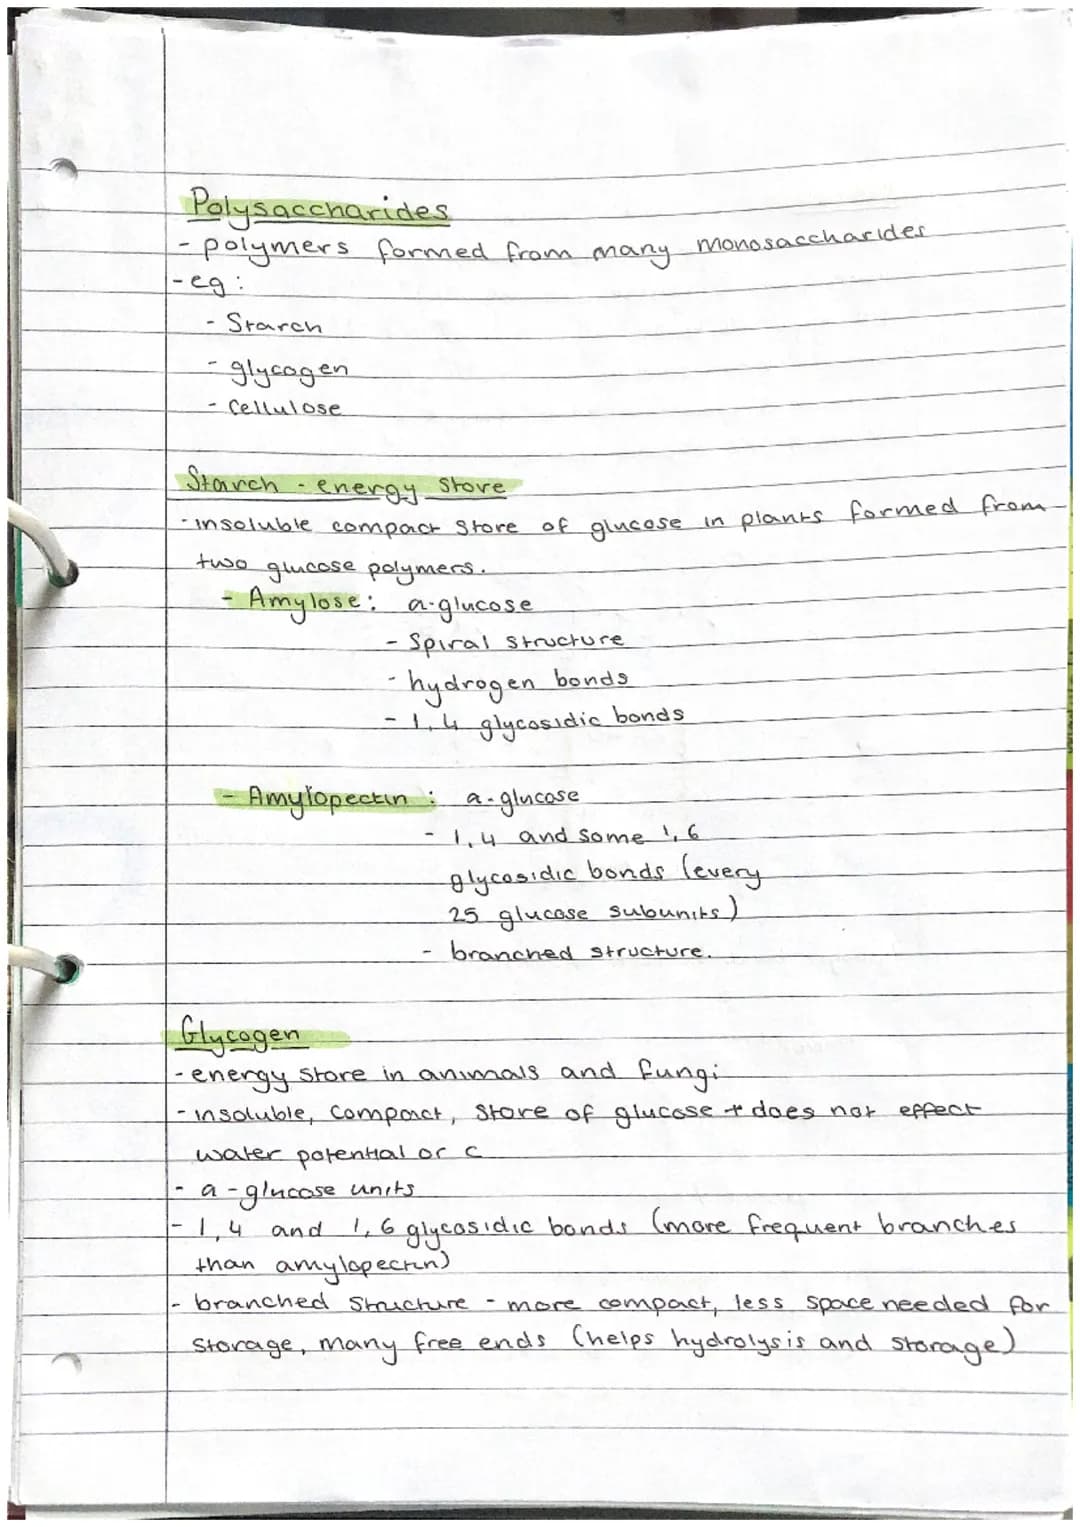 Polysaccharides
- polymers formed from many monosaccharides
- eg :
- Starch
- glycogen
- Cellulose
Starch - energy store
- insoluble compact store of glucose in plants formed from
two glucose polymers.
- Amylose : a-glucose
- Spiral structure
- hydrogen bonds
- 1,4 glycosidic bonds
- Amylopectin : a-glucose
- 1,4 and some 1,6
glycosidic bonds (every
25 glucose subunits)
- branched structure.
Glycogen
- energy store in animals and fungi
- insoluble, compact, store of glucose + does not effect
water potential or c
- a-glucose units
- 1,4 and 1,6 glycosidic bonds (more frequent branches
than amylopectin)
- branched structure - more compact, less space needed for
storage, many free ends (helps hydrolysis and storage)